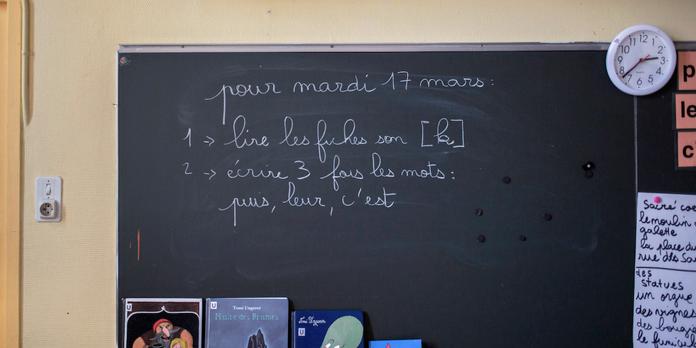 pour mardi 17 mars:
1 → lire les fiches son [k]
2 → écrire 3 fois les mots:
puis, leur, c'est
12
1
2
3
4
5
6
7
8
9
10
11
p
le
c'
Sacré coe
le moulin
galette
la place du
rue des Sau
des
statues
un orgue
des vignes
Tomi Ungerer
Maître des Brumes
Tomi Ungerer